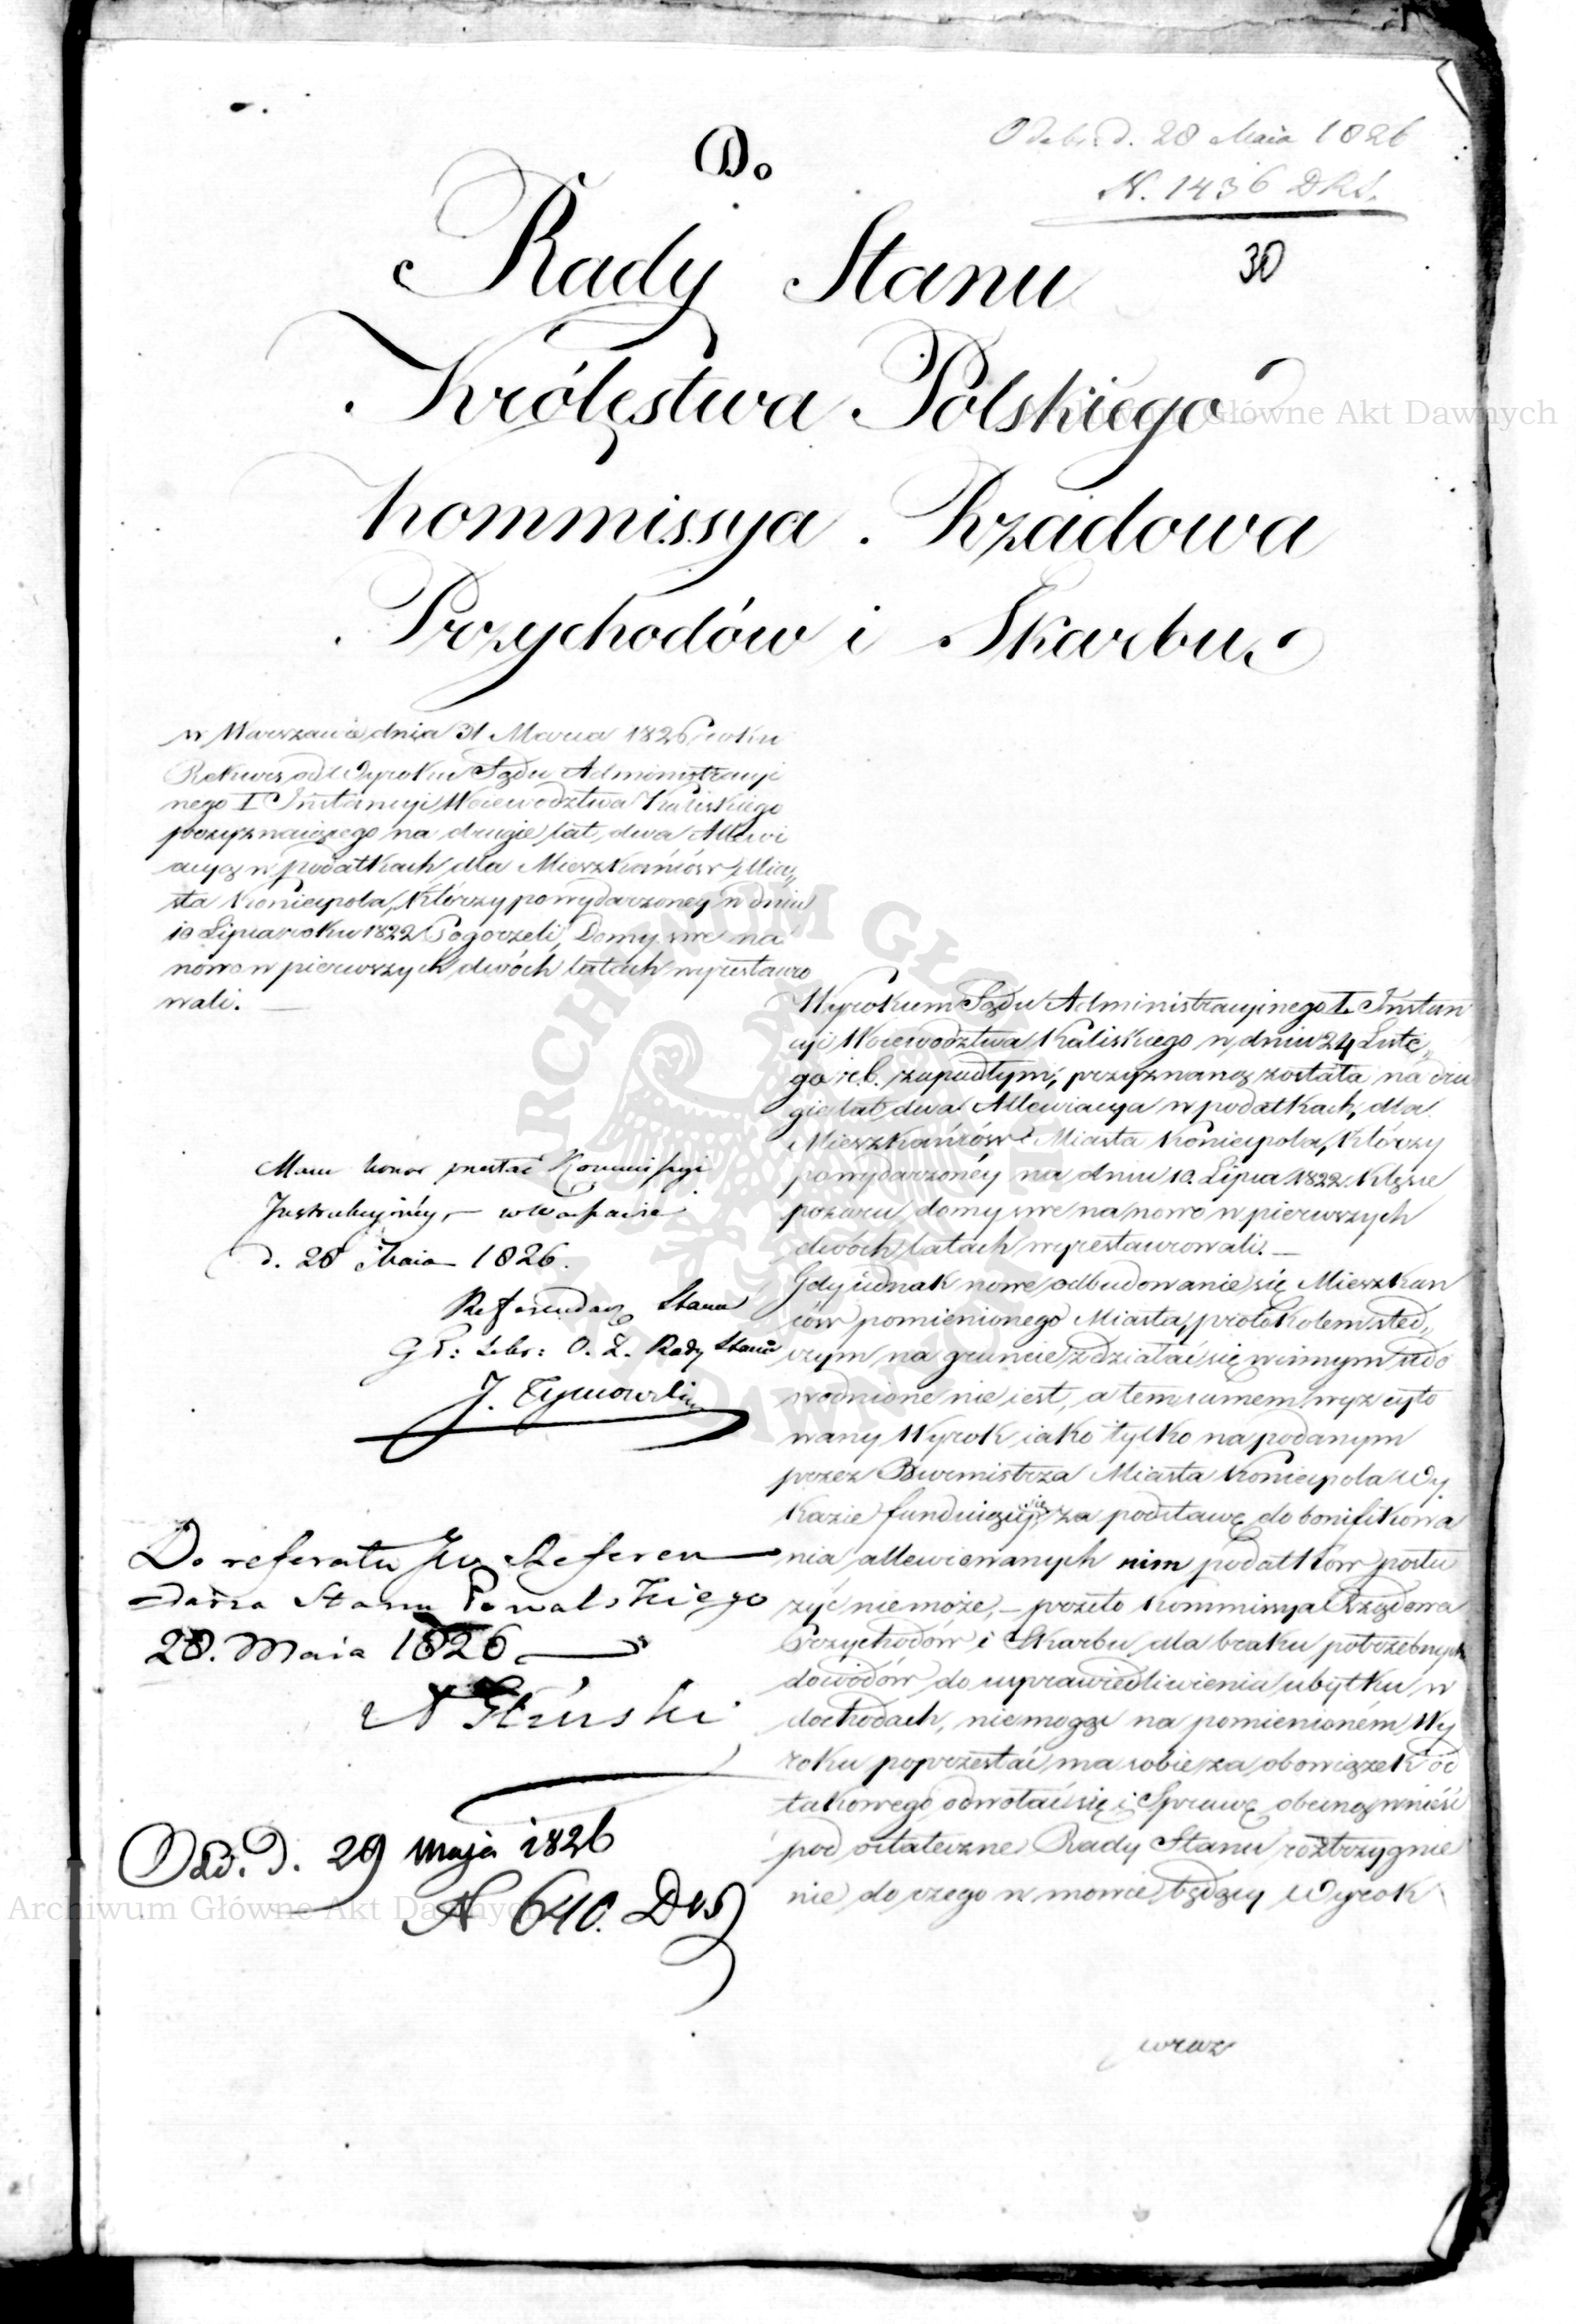 Odebr. d. 28 Maia 1826
N. 1436 DRS.
30
Do
Rady Stanu
Królestwa Polskiego
Kommissya Rządowa
Przychodów i Skarbu
w Warszawie dnia 31 Marca 1826 roku
Rekurs od Wyroku Sądu Administracyi
nego I Instancyi Woiewodztwa Kaliskiego
przyznaiącego na drugie lat dwa Allewi
acyą w podatkach dla Mieszkańców Mia„
sta Koniecpola, którzy po wydarzoney w dniu
10 Lipca roku 1822 Pogorzeli, Domy swe na
nowo w pierwszych dwóch latach wyrestauro
wali. —
Wyrokiem Sądu Administracyinego I. Instan
cyi Woiewodztwa Kaliskiego w dniu 24 Lute„
go r.b. zapadłym, przyznaną została na dru
gie lat dwa Allewiacya w podatkach, dla
Mieszkańców Miasta Koniecpola, którzy
po wydarzonéy na dniu 10. Lipca 1822 klęsce
pożaru domy swe na nowo w pierwszych
dwóch latach wyrestaurowali. —
Gdy iednak nowe odbudowanie się Mieszkań
ców pomienionego Miasta, protokołem śled„
czym na gruncie zdziałać się winnym udo
wodnione nie iest, a tem samem wyż cyto
wany Wyrok iako tylko na podanym
przez Burmistrza Miasta Koniecpola Wy
kazie funduiący się za podstawę do bonifikowa
nia allewiowanych nim podatków posłu
żyć nie może, — przeto Kommissya Rządowa
Przychodów i Skarbu dla braku potrzebnych
dowodów do usprawiedliwienia ubytku w
dochodach, nie mogąc na pomienioném Wy
roku poprzestać, ma sobie za obowiązek od
takowego odwołać się i Sprawę obecną wnieść
pod ostateczne Rady Stanu roztrzygnie
nie do czego w mowie będący Wyrok
wraz
Mam honor przesłać Kommissyi
Instrukcyinéy, — w Warszawie
d. 28 Maia 1826.
Referendarz Stanu
J. Tymowski
Do referatu JW. Referen
darza Stanu Powalskiego
28. Maia 1826
Odd. d. 29 Maja 1826
N 640.